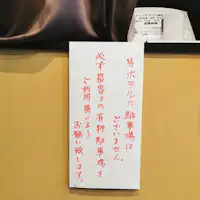 当ホテルに駐車場は
ございません。
必ず最寄りの有料駐車場を
ご利用頂けますよう
お願い致します。